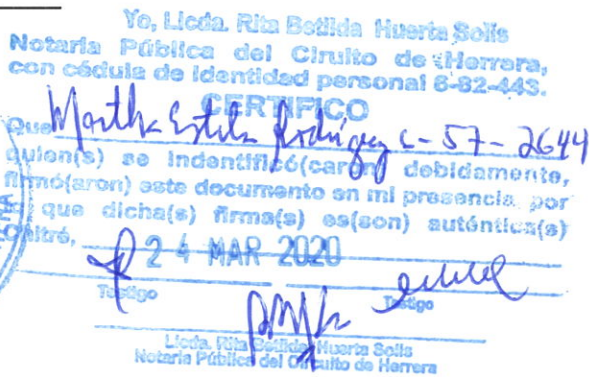 Yo, Licda. Rita Betilda Huerta Solís
Notaria Pública del Ciruito de Herrera,
con cédula de identidad personal 6-82-443.
CERTIFICO
Que Martha Estela Rodríguez 6-57-2644
quien(s) se indentificó(caron) debidamente,
firmó(aron) este documento en mi presencia por
que dicha(s) firma(s) es(son) auténtica(s)
Chitré,
24 MAR 2020
Testigo Testigo
Licda. Rita Betilda Huerta Solís
Notaria Pública del Circuito de Herrera